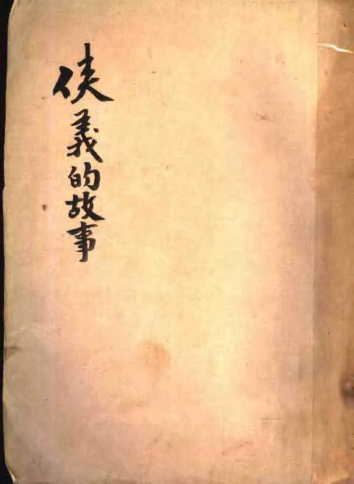 侠義的故事